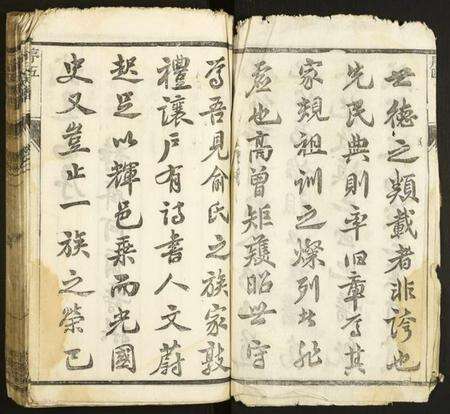 世德之類載者非誇也
先民典則率舊章焉其
家規祖訓之燦列者非
虛也高曾矩矱昭世守
焉吾見俞氏之族家敦
禮讓戶有詩書人文蔚
起足以輝邑乘而光國
史又豈止一族之榮已